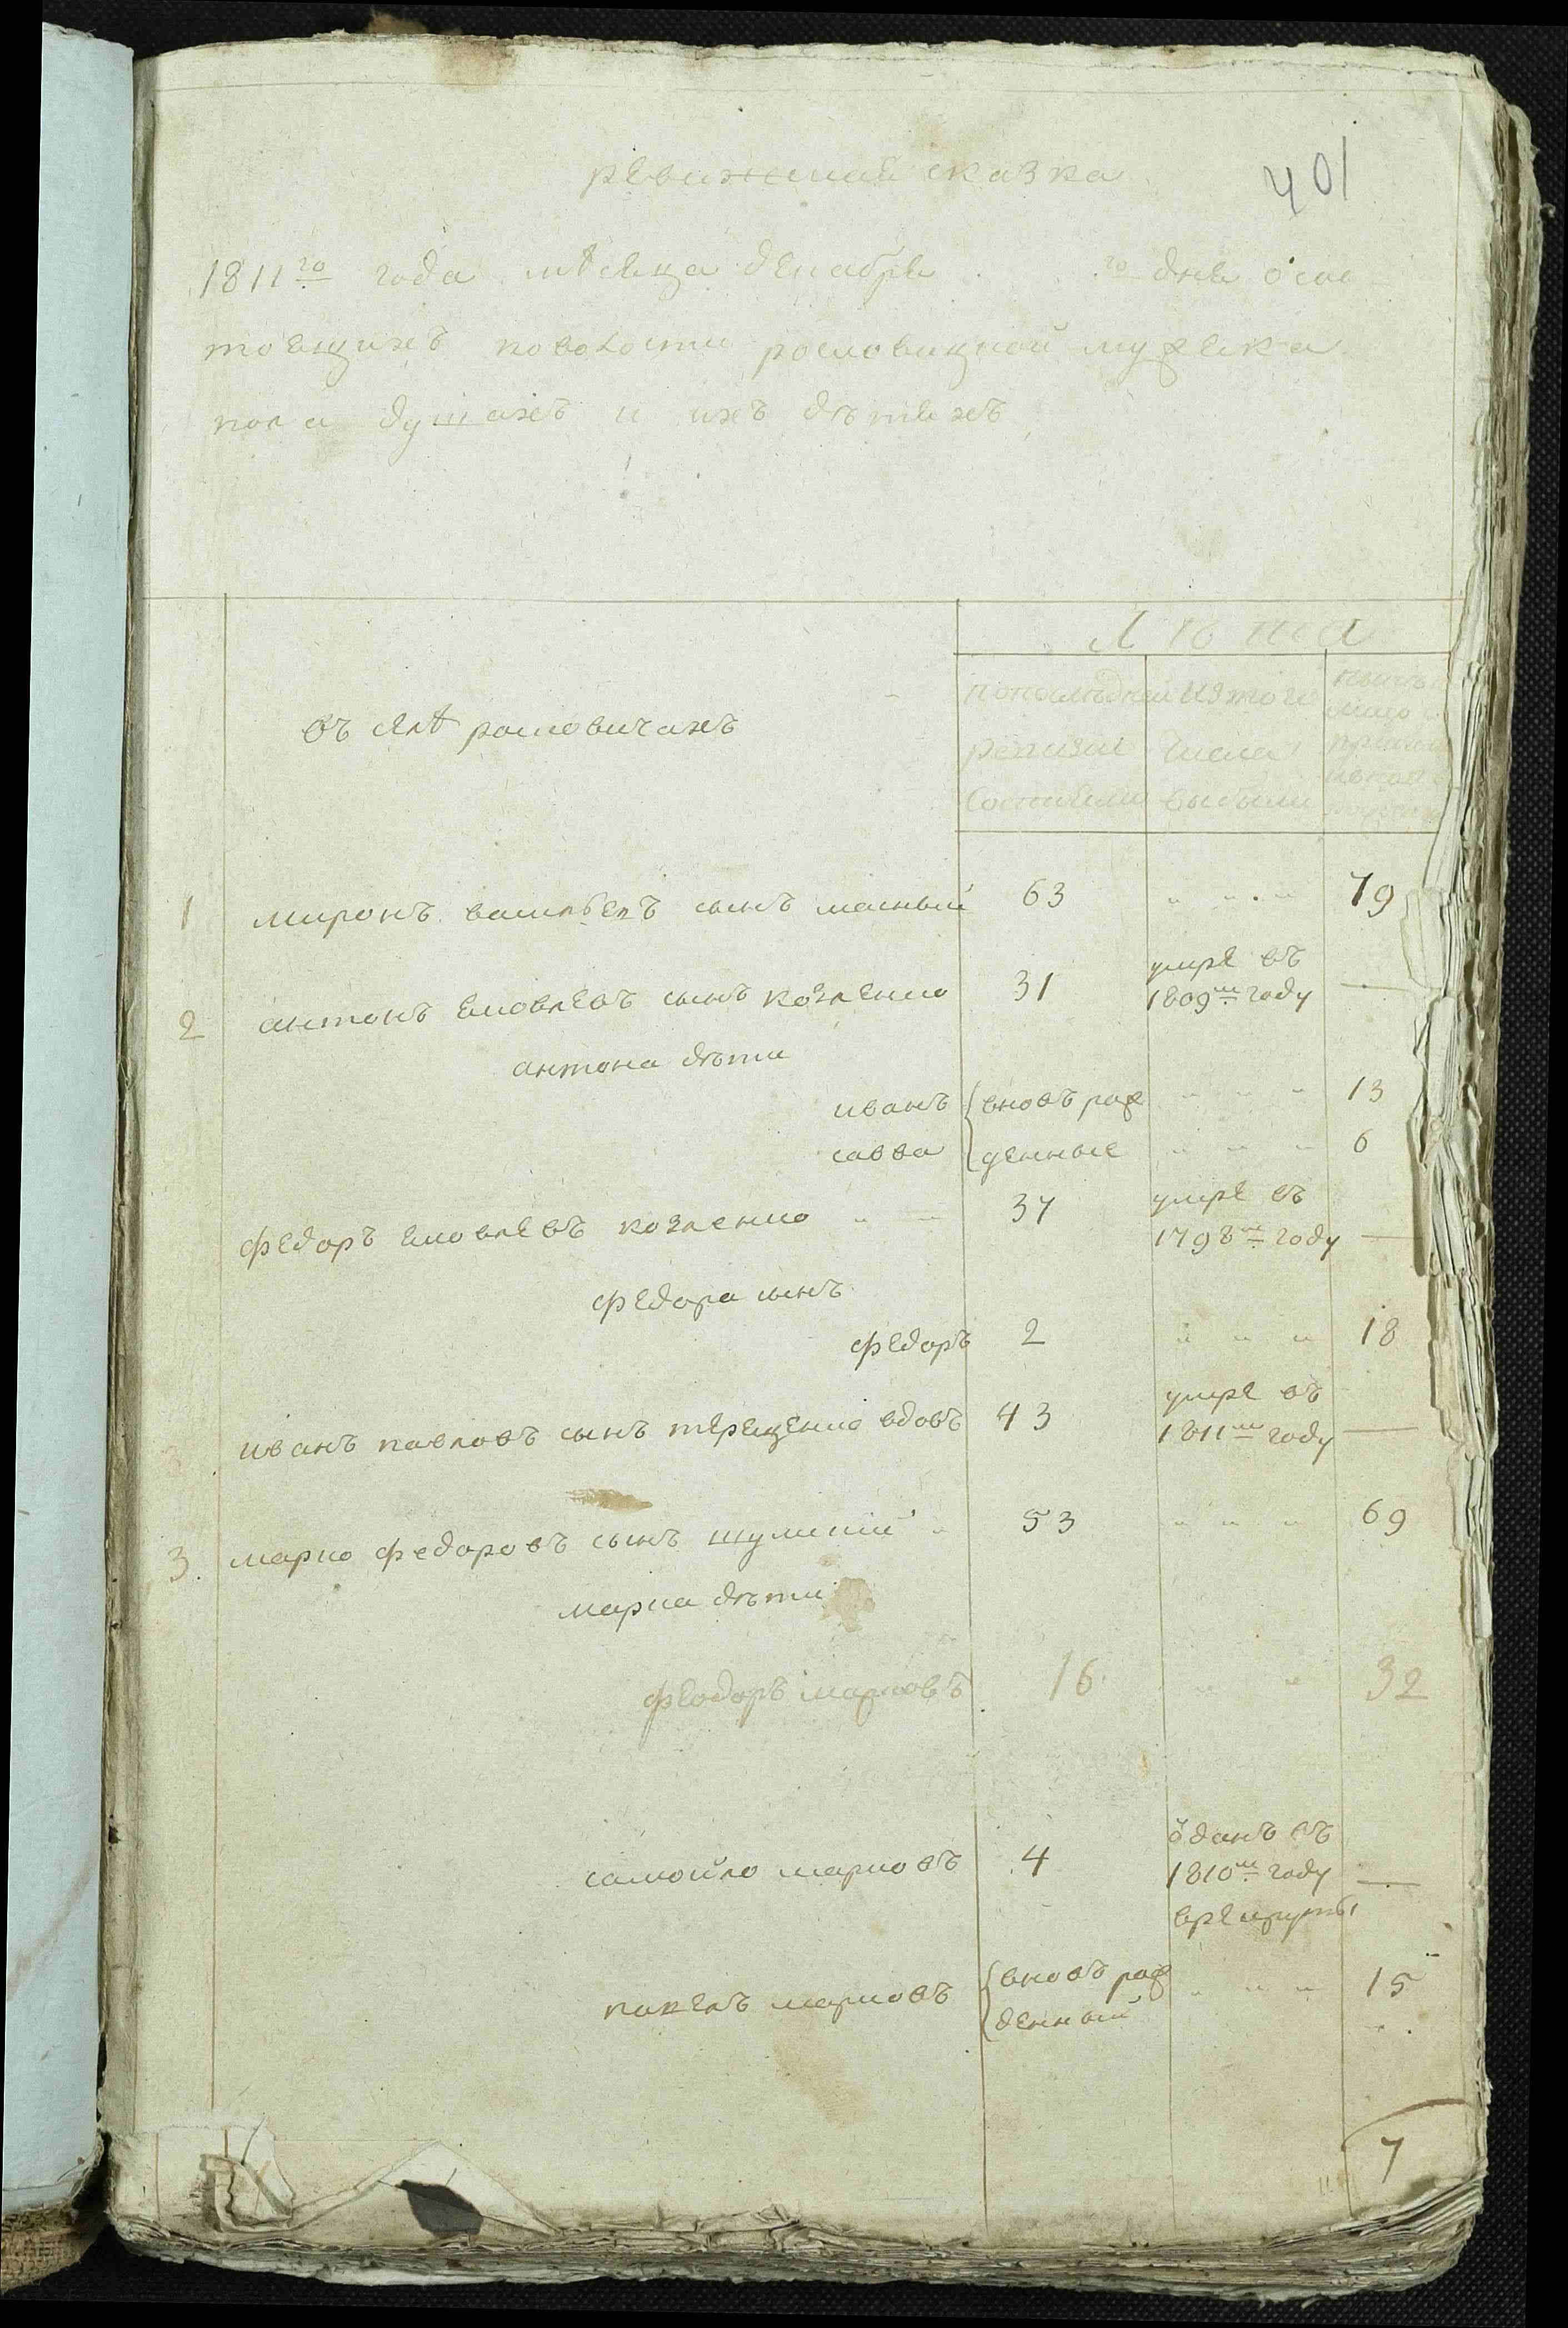 401
ревижская сказка
1811го года мѣсяца декабря го дня о сос
тоящихъ поволости росковицкой мужеска
пола душахъ и ихъ дѣтяхъ
Лѣта
попослѣдней ревизии состояли
изтого числа выбыли
въ селѣ расковичахъ
1 миронъ васильевъ сынъ масный 63 79
2 антонъ яковлевъ сынъ козленко 31 умре въ 1809м году —
антона дѣти
иванъ вновь рож 13
савва денные 6
федоръ яковлевъ козленко 37 умре въ 1798м году —
федора сынъ
федоръ 2 18
иванъ павловъ сынъ терещенко вдовъ 43 умре въ 1811м году —
3. марко федоровъ сынъ шумский 53 69
марка дѣти
феодоръ марковъ 16 32
самойло марковъ 4 оданъ въ 1810м году врекруты —
павелъ марковъ вновь рож 15
денный
7